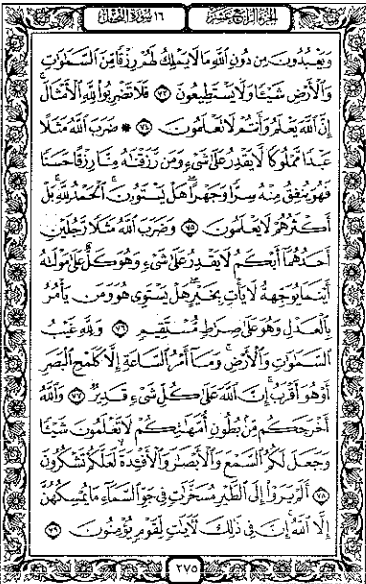 الجزء الرابع عشر ١٦ سورة النحل
وَيَعْبُدُونَ مِن دُونِ ٱللَّهِ مَا لَا يَمْلِكُ لَهُمْ رِزْقًا مِّنَ ٱلسَّمَٰوَٰتِ
وَٱلْأَرْضِ شَيْـًٔا وَلَا يَسْتَطِيعُونَ ٧٣ فَلَا تَضْرِبُوا۟ لِلَّهِ ٱلْأَمْثَالَ ۚ
إِنَّ ٱللَّهَ يَعْلَمُ وَأَنتُمْ لَا تَعْلَمُونَ ٧٤ ۞ ضَرَبَ ٱللَّهُ مَثَلًا
عَبْدًا مَّمْلُوكًا لَّا يَقْدِرُ عَلَىٰ شَىْءٍ وَمَن رَّزَقْنَٰهُ مِنَّا رِزْقًا حَسَنًا
فَهُوَ يُنفِقُ مِنْهُ سِرًّا وَجَهْرًا ۖ هَلْ يَسْتَوُۥنَ ۚ ٱلْحَمْدُ لِلَّهِ ۚ بَلْ
أَكْثَرُهُمْ لَا يَعْلَمُونَ ٧٥ وَضَرَبَ ٱللَّهُ مَثَلًا رَّجُلَيْنِ
أَحَدُهُمَآ أَبْكَمُ لَا يَقْدِرُ عَلَىٰ شَىْءٍ وَهُوَ كَلٌّ عَلَىٰ مَوْلَىٰهُ
أَيْنَمَا يُوَجِّههُّ لَا يَأْتِ بِخَيْرٍ ۖ هَلْ يَسْتَوِى هُوَ وَمَن يَأْمُرُ
بِٱلْعَدْلِ ۙ وَهُوَ عَلَىٰ صِرَٰطٍ مُّسْتَقِيمٍ ٧٦ وَلِلَّهِ غَيْبُ
ٱلسَّمَٰوَٰتِ وَٱلْأَرْضِ ۚ وَمَآ أَمْرُ ٱلسَّاعَةِ إِلَّا كَلَمْحِ ٱلْبَصَرِ
أَوْ هُوَ أَقْرَبُ ۚ إِنَّ ٱللَّهَ عَلَىٰ كُلِّ شَىْءٍ قَدِيرٌ ٧٧ وَٱللَّهُ
أَخْرَجَكُم مِّنۢ بُطُونِ أُمَّهَٰتِكُمْ لَا تَعْلَمُونَ شَيْـًٔا
وَجَعَلَ لَكُمُ ٱلسَّمْعَ وَٱلْأَبْصَٰرَ وَٱلْأَفْـِٔدَةَ ۙ لَعَلَّكُمْ تَشْكُرُونَ
٧٨ أَلَمْ يَرَوْا۟ إِلَى ٱلطَّيْرِ مُسَخَّرَٰتٍ فِى جَوِّ ٱلسَّمَآءِ مَا يُمْسِكُهُنَّ
إِلَّا ٱللَّهُ ۗ إِنَّ فِى ذَٰلِكَ لَءَايَٰتٍ لِّقَوْمٍ يُؤْمِنُونَ ٧٩
٢٧٥